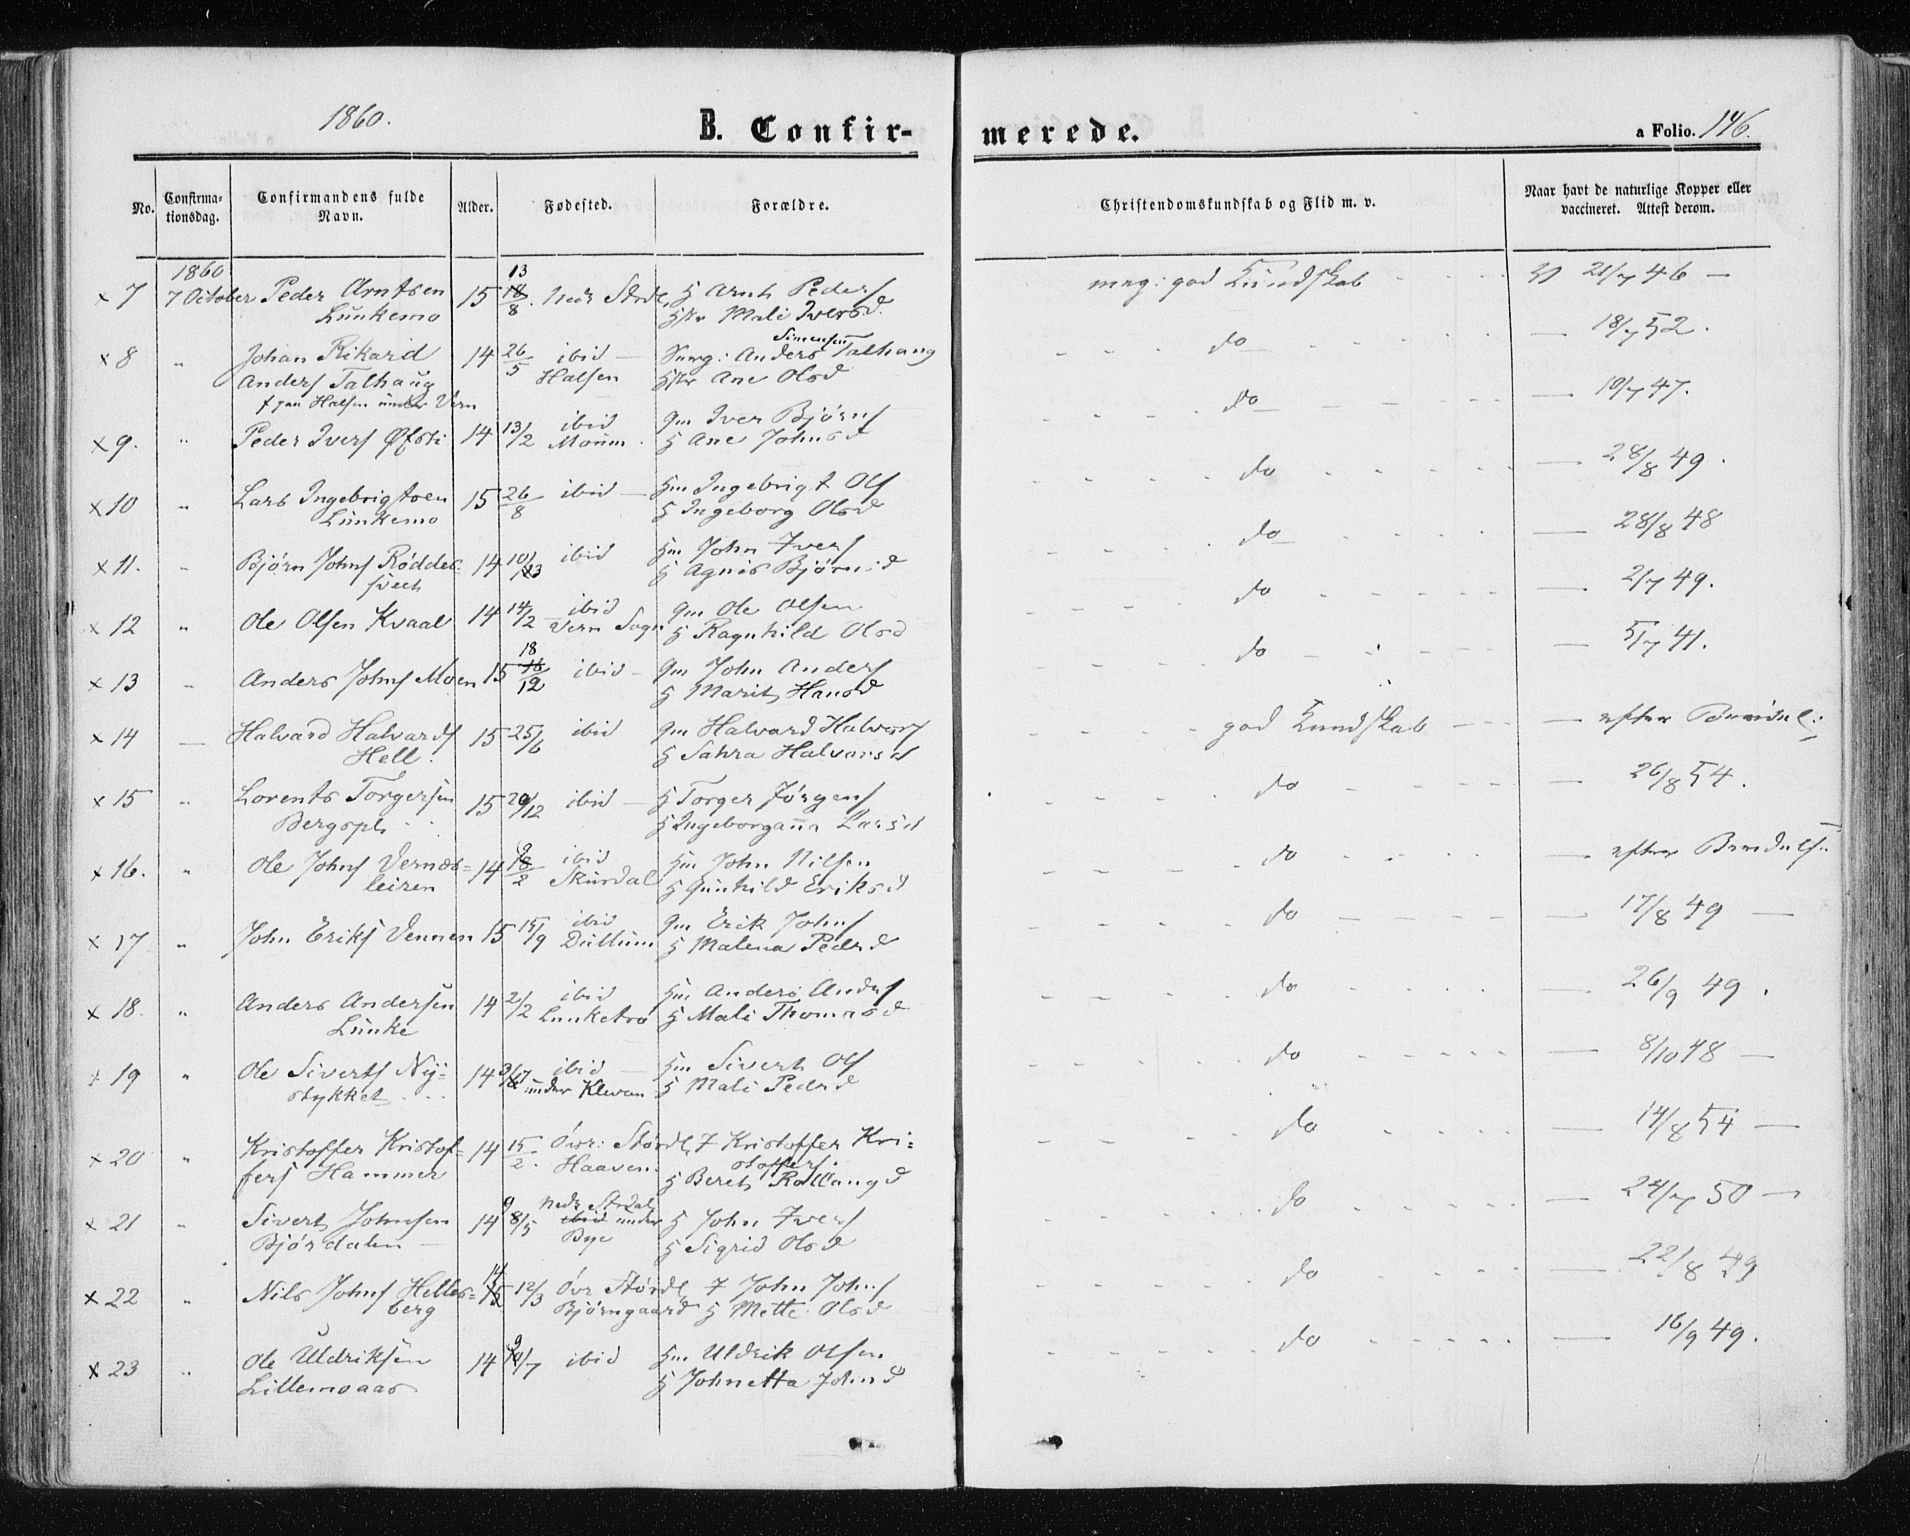 1860.
B. Confir-
merede.
a Folio. 146.
No.
Confirma-
tionsdag.
Confirmandens fulde
Navn.
Alder.
Fødested.
Forældre.
Christendomskundskab og Flid m. v.
Naar havt de naturlige Kopper eller
vaccineret. Attest derom.
1860
x 7 7 October Peder Arntsen 15 13 18/8 Nedr Strdl. Arnt Peders meg: god Kundskab 21/7 46
Lunkemo Mali Iversd.
x 8 " Johan Rikard 14 26/5 ibid Simensen Anders Talhaug do 18/7 52.
Anders Talhaug Halsen Ane Olsd
Halsen under Vern
x 9. " Peder Ivers Øfsti 14 13/2 ibid Gm Iver Bjørns do 10/7 47.
Moum. H Ane Johnsd
x 10 " Lars Ingebrigtsen 15 26/8 ibid Hm Ingebrigt Ols do 28/8 49.
Lunkemo H Ingeborg Olsd
x 11. " Bjørn Johns Røddes- 14 10/ ibid Hm John Ivers do 28/8 48
H Agnis Bjørnsd
x 12 " Ole Olsen Kvaal 14 14/2 ibid Gm Ole Olsen do 2/7 49.
Vern Sogn H Ragnhild Olsd
x 13 " Anders Johns Moen 15 18 16/12 ibid Gm John Anders do 5/7 41.
H Marit Hansd
x 14 — Halvard Halvards 15 25/6 ibid Gm Halvard Halvors god Kundskab efter
Hell. H Sahra Halvorsd
x 15 " Lorents Torgersen 15 20/12 ibid H Torger Jørgens do 26/8 54.
Bergspl. H Ingeborganna Larsd
x 16. " Ole Johns Vernæs- 14 9 18/2 ibid Hm John Nilsen do efter
leiren Skurdal H Gunhild Eriksd
x 17 " John Eriks Vennen 15 15/9 ibid Gm Erik Johns do 17/8 49
Dullum H Malena Pedrd
x 18. " Anders Andersen 14 2/2 ibid Hm Anders Anders do 26/9 49.
Lunke Lunketrø H Mali Thomasd
x 19 " Ole Siverts Ny- 14 ibid Hm Sivert Ols do 8/10 48
stykket under Klevan H Mali Pedrd
x 20 " Kristoffer Kristof- 14 15/2. Övr: Stördl. F Kristoffer Kri- do 14/8 54
fers Hammer Haaven. stoffers.
H Beret Rollaugd
x 21 " Sivert Johnsen 14 9 8/5 Nedr Strdal ibid under H John Ivers do 24/7 50
Bjørdalen Bye H Sigrid Olsd
x 22 " Nils Johns Helles- 14 15 12/3 Övr Stördl. F John Johns do 22/8 49
berg Bjørngaard H Mette Olsd
x 23 " Ole Uldriksen 14 9 10/7 ibid Hm Uldrik Olsen do 16/9 49.
Litlemoaas H Johnetta Johnsd